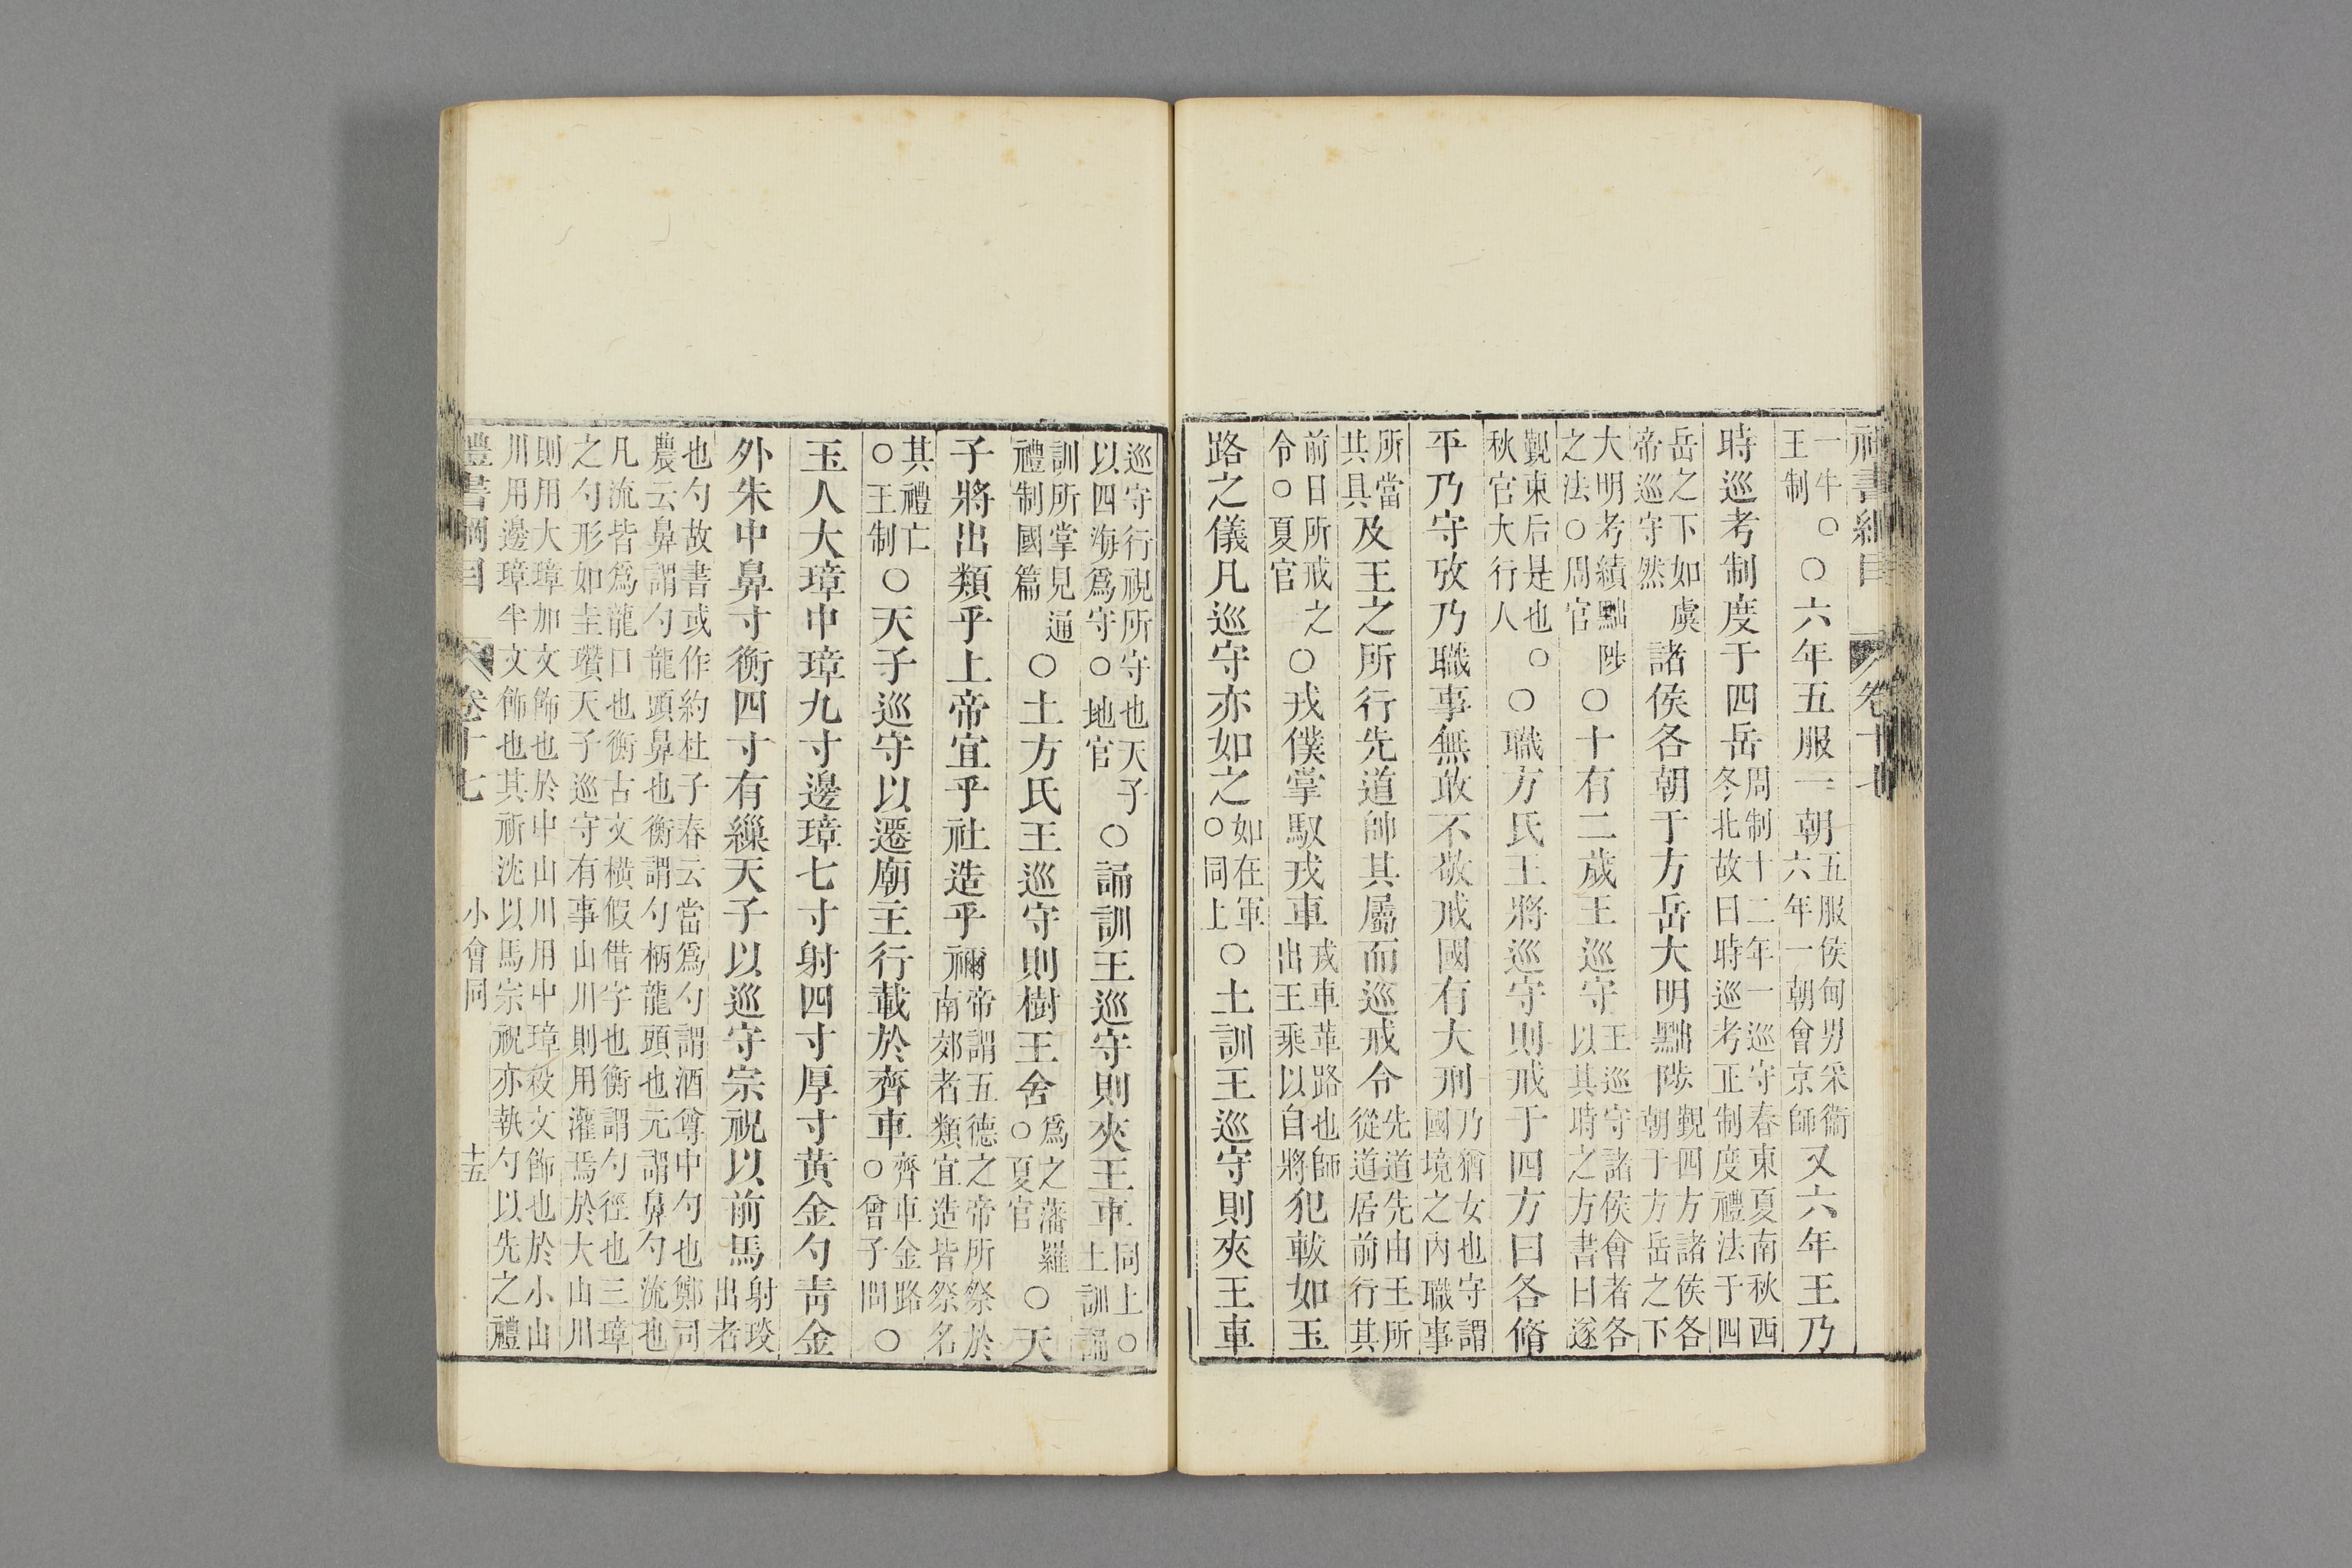 禮書綱目 卷十七
一牛○王制○六年五服一朝五服侯甸男采衞六年一朝會京師又六年王乃
時巡考制度于四岳周制十二年一巡守春東夏南秋西冬北故曰時巡考正制度禮法于四
岳之下如虞帝巡守然諸侯各朝于方岳大明黜陟覲四方諸侯各朝于方岳之下
大明考績黜陟之法○周官○十有二歲王巡守王巡守諸侯會者各以其時之方書曰遂
覲東后是也○秋官大行人○職方氏王將巡守則戒于四方曰各脩
平乃守攷乃職事無敢不敬戒國有大刑乃猶女也守謂國境之內職事
所當共具及王之所行先道帥其屬而巡戒令先道先由王所從道居前行其
前日所戒之令○夏官○戎僕掌馭戎車戎車革路也師出王乘以自將犯軷如玉
路之儀凡巡守亦如之如在軍○同上○土訓王巡守則夾王車
巡守行視所守也天子以四海爲守○地官○誦訓王巡守則夾王車同上○土訓誦
訓所掌見通禮制國篇○土方氏王巡守則樹王舍爲之藩羅○夏官○天
子將出類乎上帝宜乎社造乎禰帝謂五德之帝所祭於南郊者類宜造皆祭名
其禮亡○王制○天子巡守以遷廟主行載於齊車齊車金路○曾子問○
玉人大璋中璋九寸邊璋七寸射四寸厚寸黄金勺青金
外朱中鼻寸衡四寸有繅天子以巡守宗祝以前馬射琰出者
也勺故書或作約杜子春云當爲勺謂酒尊中勺也鄭司農云鼻謂勺龍頭鼻也衡謂勺柄龍頭也元謂鼻勺流也
凡流皆爲龍口也衡古文橫假借字也衡謂勺徑也三璋之勺形如圭瓚天子巡守有事山川則用灌焉於大山川
則用大璋加文飾也於中山川用中璋殺文飾也於小山川用邊璋半文飾也其祈沈以馬宗祝亦執勺以先之禮
禮書綱目 卷十七 小會同 十五